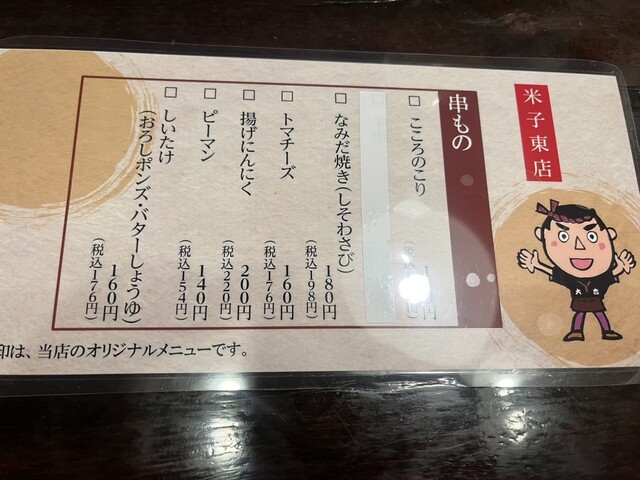 米子東店
串もの
□ こころのこり
□ なみだ焼き(しそわさび)
180円
(税込198円)
□ トマチーズ
160円
(税込176円)
□ 揚げにんにく
200円
(税込220円)
□ ピーマン
140円
(税込154円)
□ しいたけ
(おろしポンズ・バターしょうゆ)
160円
(税込176円)
印は、当店のオリジナルメニューです。